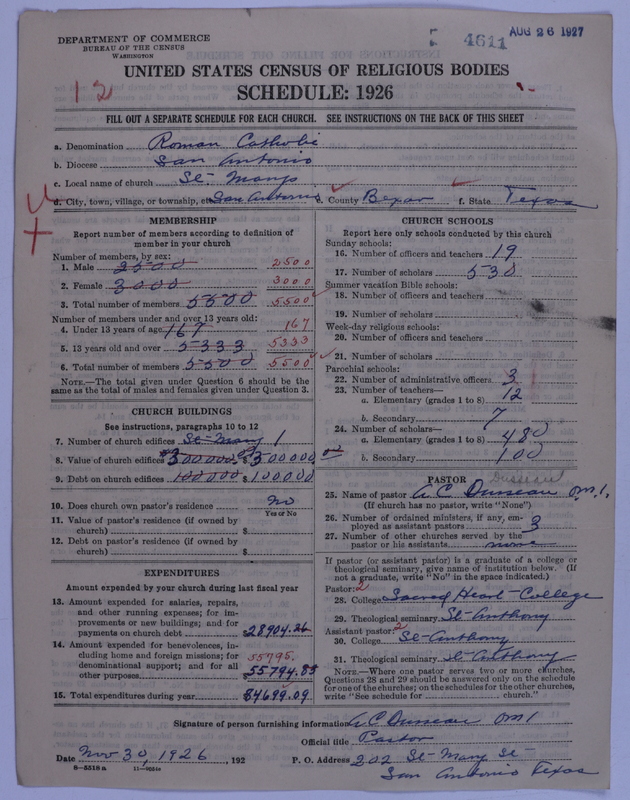 DEPARTMENT OF COMMERCE
BUREAU OF THE CENSUS
WASHINGTON
4611
AUG 26 1927
UNITED STATES CENSUS OF RELIGIOUS BODIES
SCHEDULE: 1926
12
FILL OUT A SEPARATE SCHEDULE FOR EACH CHURCH. SEE INSTRUCTIONS ON THE BACK OF THIS SHEET
a. Denomination Roman Catholic
b. Diocese San Antonio
c. Local name of church St- Marys
d. City, town, village, or township, etc San Antonio e. County Bexar f. State Texas
MEMBERSHIP
Report number of members according to definition of
member in your church
Number of members, by sex:
1. Male 2500 2500
2. Female 3000 3000
3. Total number of members 5500 5500
Number of members under and over 13 years old:
4. Under 13 years of age 167 167
5. 13 years old and over 5333 5333
6. Total number of members 5500 5500
NOTE.—The total given under Question 6 should be the
same as the total of males and females given under Question 3.
CHURCH BUILDINGS
See instructions, paragraphs 10 to 12
7. Number of church edifices St- Mary 1
8. Value of church edifices 300000.00 $300000.00
9. Debt on church edifices 100000 $100000
10. Does church own pastor's residence No
Yes or No
11. Value of pastor's residence (if owned by
church) $
12. Debt on pastor's residence (if owned by
church) $
EXPENDITURES
Amount expended by your church during last fiscal year
13. Amount expended for salaries, repairs,
and other running expenses; for im-
provements or new buildings; and for
payments on church debt $28904.26
14. Amount expended for benevolences, in-
cluding home and foreign missions; for 55795.
denominational support; and for all
other purposes 55794.83
15. Total expenditures during year $84699.09
CHURCH SCHOOLS
Report here only schools conducted by this church
Sunday schools:
16. Number of officers and teachers 19
17. Number of scholars 530
Summer vacation Bible schools:
18. Number of officers and teachers
19. Number of scholars
Week-day religious schools:
20. Number of officers and teachers
21. Number of scholars
Parochial schools:
22. Number of administrative officers 3
23. Number of teachers—
a. Elementary (grades 1 to 8) 12
b. Secondary 7
24. Number of scholars—
a. Elementary (grades 1 to 8) 480
b. Secondary 100
PASTOR
25. Name of pastor A C Dusseau OMI.
(If church has no pastor, write "None")
26. Number of ordained ministers, if any, em-
ployed as assistant pastors 3
27. Number of other churches served by the
pastor or his assistants none
If pastor (or assistant pastor) is a graduate of a college or
theological seminary, give name of institution below. (If
not a graduate, write "No" in the space indicated.)
Pastor: 2
28. College Sacred Heart-College
29. Theological seminary St-Anthony
Assistant pastor: 2
30. College St-Anthony
31. Theological seminary St-Anthony
NOTE.—Where one pastor serves two or more churches,
Questions 28 and 29 should be answered only on the schedule
for one of the churches; on the schedules for the other churches,
write "See schedule for church."
Signature of person furnishing information A C Dusseau OMI
Official title Pastor
Date Nov 30, 1926, 192 P. O. Address 202 St- Mary St-
8-5518a 11-9034
San Antonio Texas